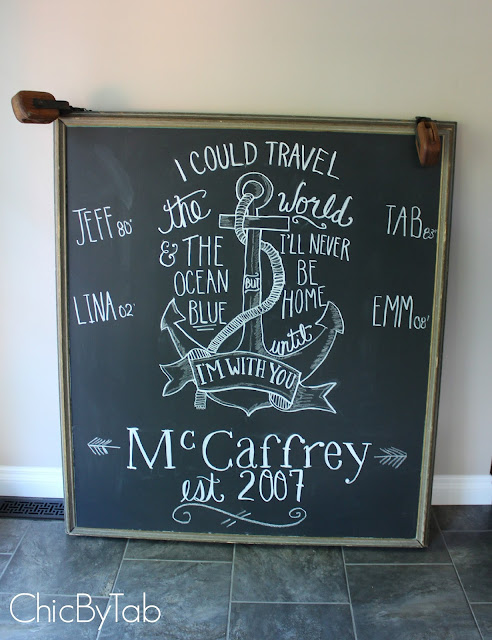 I COULD TRAVEL
the World
& THE OCEAN BLUE
BUT
I'LL NEVER BE HOME
until
I'M WITH YOU
JEFF 80'
LINA 02'
TAB 83'
EMM 08'
McCaffrey
est 2007
ChicByTab